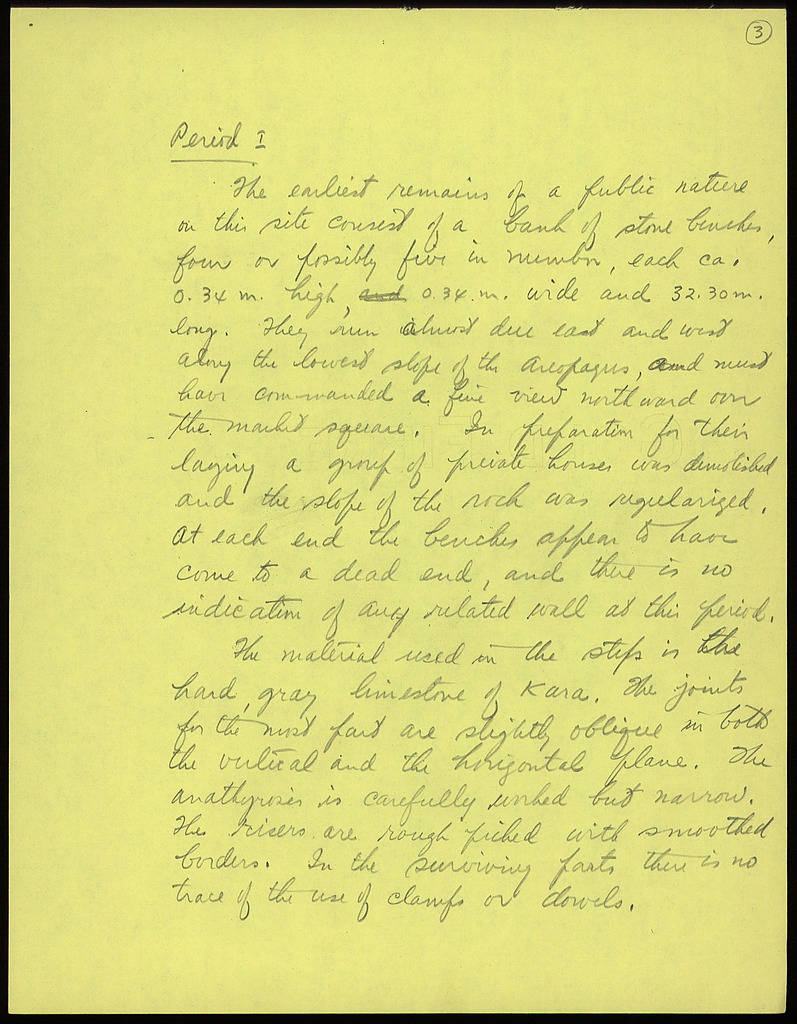 3
Period I
The earliest remains of a public nature
on this site consist of a bank of stone benches,
four or possibly five in number, each ca.
0.34 m. high, and 0.34 m. wide and 32.30 m.
long. They run almost due east and west
along the lowest slope of the Areopagus, and must
have commanded a fine view northward over
the market square. In preparation for their
laying a group of private houses was demolished
and the slope of the rock was regularized.
At each end the benches appear to have
come to a dead end, and there is no
indication of any related wall at this period.
The material used in the steps is the
hard, gray limestone of Kara. The joints
for the most part are slightly oblique in both
the vertical and the horizontal plane. The
anathyrosis is carefully worked but narrow.
The risers are rough picked with smoothed
borders. In the surviving parts there is no
trace of the use of clamps or dowels.